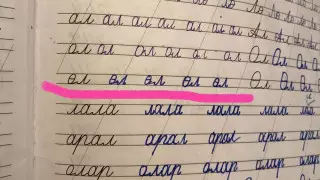 ал ал ал ал ал Ал Ал
ол ол ол ол ол Ол Ол Ол
өл өл өл өл өл Ол Ол Ол
лала лала лала лала лала
арал арал арал арал
олар олар олар олар